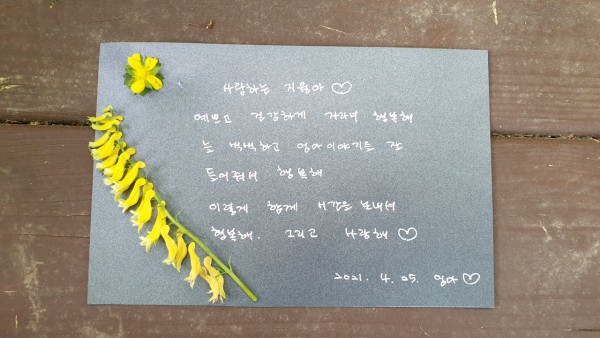 사랑하는 지율아 ♡
예쁘고 건강하게 자라줘 행복해
늘 씩씩하고 엄마이야기를 잘
들어줘서 행복해
이렇게 함께 시간을 보내서
행복해. 그리고 사랑해 ♡
2021. 4. 05. 엄마 ♡